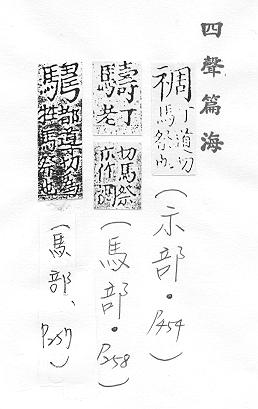 四聲篇海
禂丁道切馬祭(示部・P454)
丁老切馬祭亦作禂(馬部・P258)
都道切為牲馬祭也(馬部、P257)